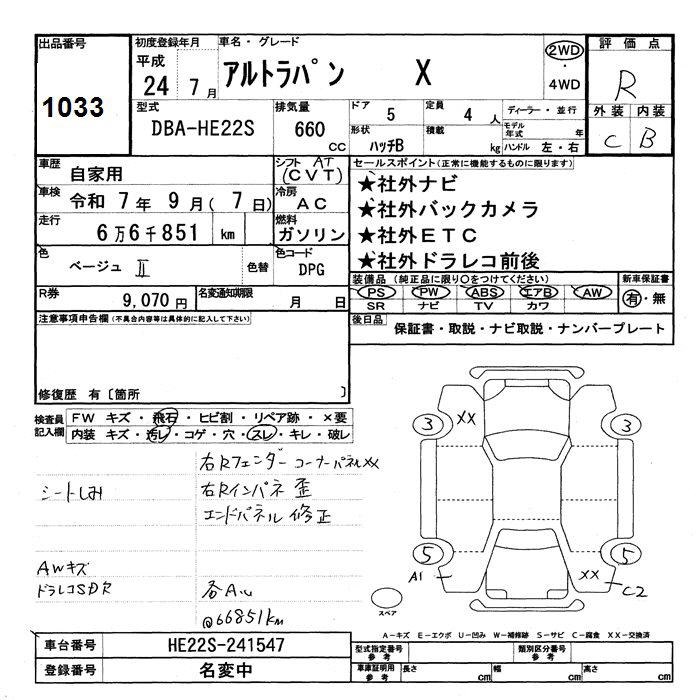 出品番号
1033
初度登録年月
平成
24 7 月
車名・グレード
アルトラパン X
2WD
・
4WD
評価点
R
外装 内装
C B
型式
DBA-HE22S
排気量
660
CC
ドア
5
定員
4 人
ディーラー・並行
モデル
年式 年
形状
ハッチB
積載
kg
ハンドル 左・右
車歴
自家用
シフト AT
(CVT)
車検
令和 7 年 9 月( 7 日)
冷房
AC
走行
6万6千851 km
燃料
ガソリン
色
ベージュ II
色替
色コード
DPG
R券
9,070 円
名変通知期限
月 日
セールスポイント(正常に機能するものに限ります)
★社外ナビ
★社外バックカメラ
★社外ETC
★社外ドラレコ前後
装備品 (純正品に限り○をつけてください)
新車保証書
PS PW ABS エアB AW
SR ナビ TV カワ
有・無
後日品
保証書・取説・ナビ取説・ナンバープレート
注意事項申告欄(不具合内容等は具体的に記入して下さい)
修復歴 有〔箇所 〕
検査員
記入欄
FW キズ・飛石・ヒビ割・リペア跡・×要
内装 キズ・汚レ・コゲ・穴・スレ・キレ・破レ
右Rフェンダー コーナーパネルXX
シートしみ
右Rインパネ 歪
エンドパネル 修正
AWキズ
ドラレコSDR
@66851km
3 XX 3
5 5
A1 XX C2
スペア
A−キズ E−エクボ U−凹み W−補修跡 S−サビ C−腐食 XX−交換済
車台番号
HE22S-241547
登録番号
名変中
型式指定番号
参考
類別区分番号
参考
車庫証明用
参考
長さ cm
幅 cm
高さ cm